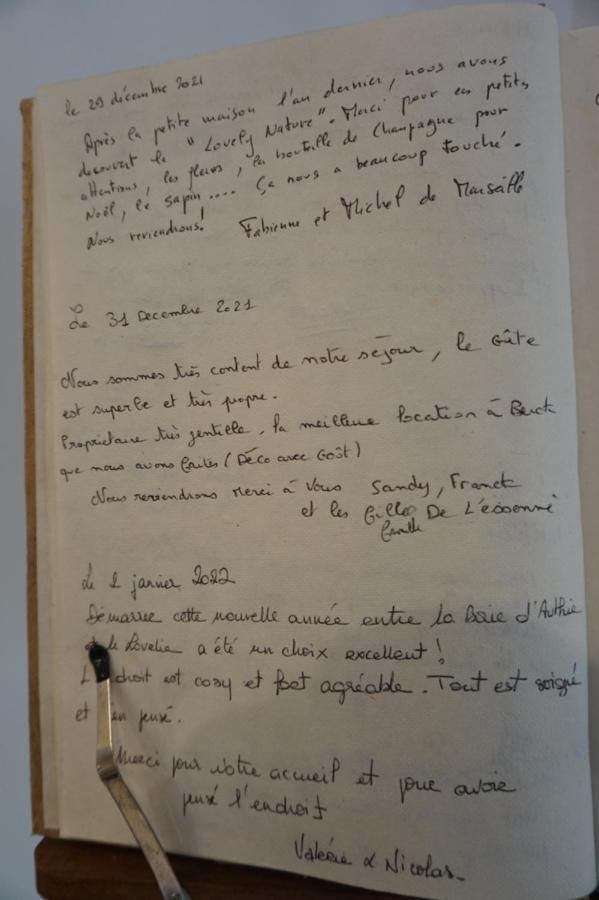 le 29 décembre 2021
Après la petite maison l'an dernier, nous avons
decouvert le "Lovely Nature". Merci pour ces petites
attentions, les fleurs, la bouteille de Champagne pour
Noël, le sapin.... Ça nous a beaucoup touché.
Nous reviendrons! Fabienne et Michel de Marseille
Le 31 Decembre 2021
Nous sommes très content de notre séjour, le Gîte
est superbe et très propre.
Proprietaire très gentille, la meilleure location à Berck
que nous avons faites (Déco avec Goût)
Nous reviendrons Merci à Vous Sandy, Franck
et les filles De L'essonne
Le 2 janvier 2022
Démarrer cette nouvelle année entre la Baie d'Authie
le Lovelia a été un choix excellent !
est cosy et fort agréable. Tout est soigné
et pensé.
Merci pour votre accueil et pour avoir
pensé l'endroit
Valérie & Nicolas